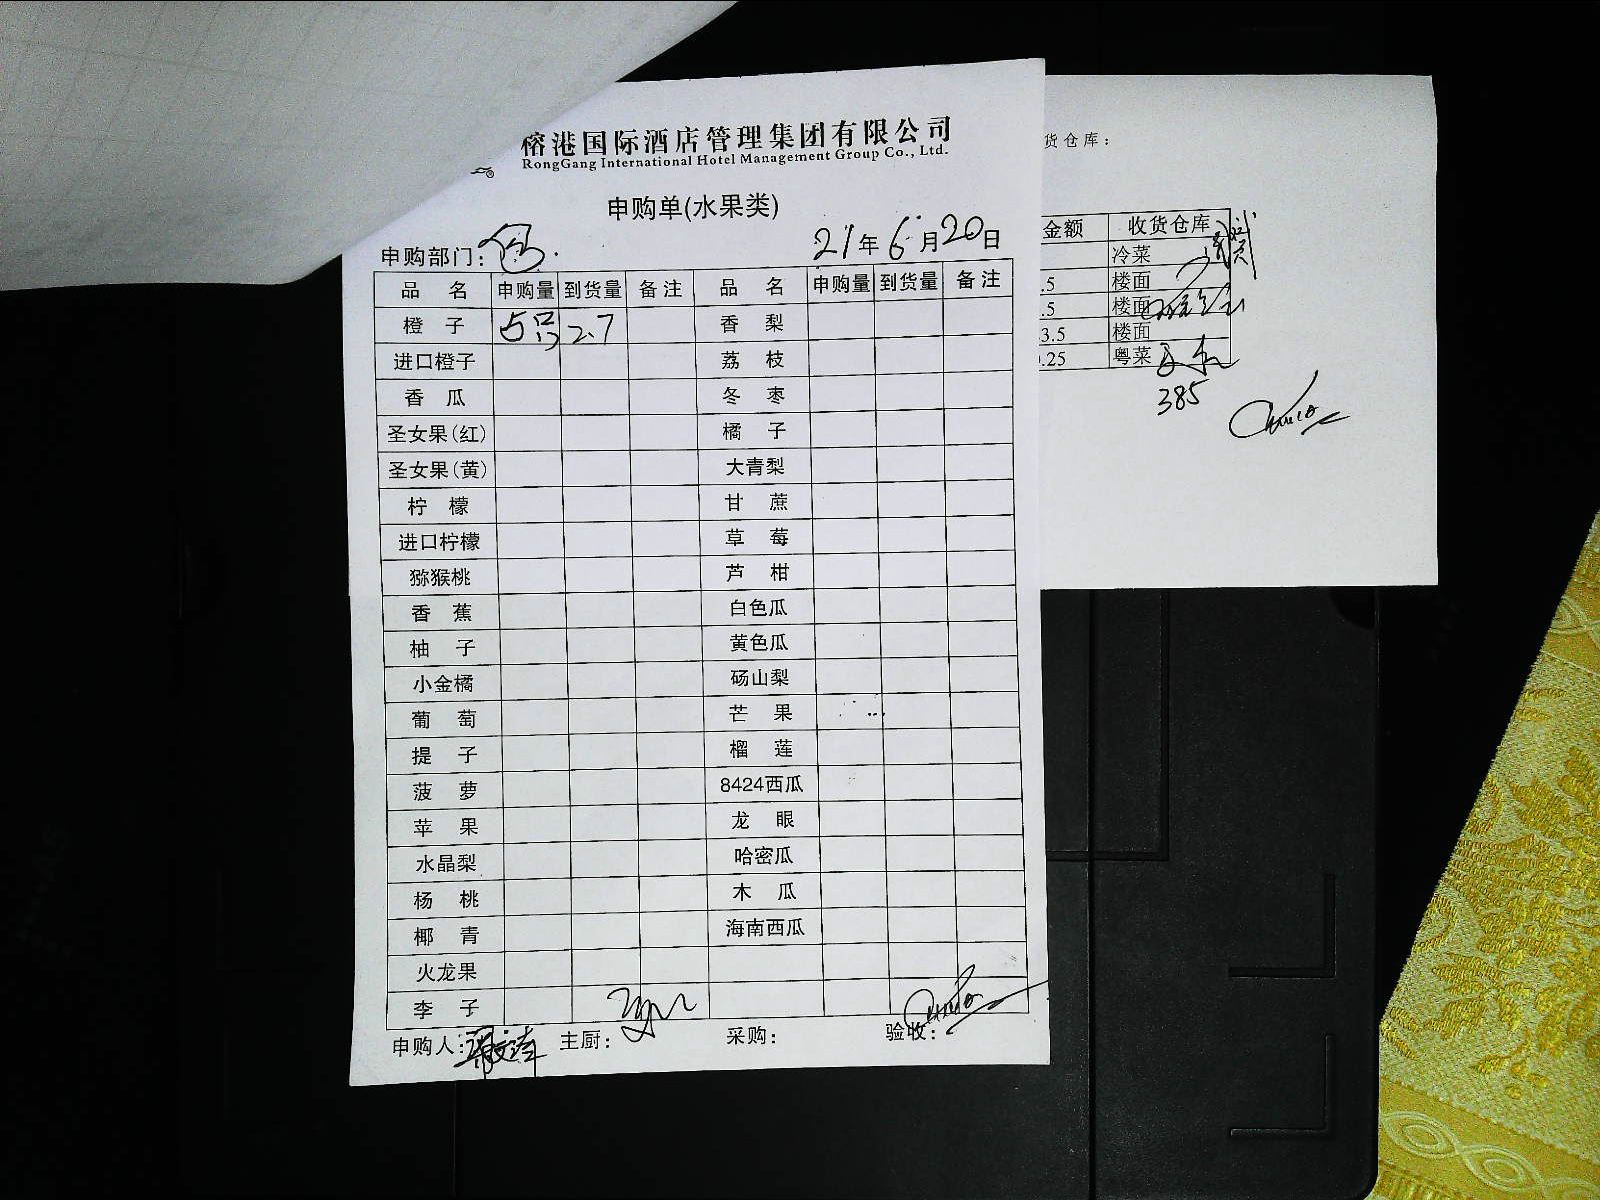 榕港国际酒店管理集团有限公司
RongGang International Hotel Management Group Co., Ltd.
申购单(水果类)
申购部门: 21年6月20日
品名 申购量 到货量 备注 品名 申购量 到货量 备注
橙子 5只 2.7 香梨
进口橙子 荔枝
香瓜 冬枣
圣女果(红) 橘子
圣女果(黄) 大青梨
柠檬 甘蔗
进口柠檬 草莓
猕猴桃 芦柑
香蕉 白色瓜
柚子 黄色瓜
小金橘 砀山梨
葡萄 芒果
提子 榴莲
菠萝 8424西瓜
苹果 龙眼
水晶梨 哈密瓜
杨桃 木瓜
椰青 海南西瓜
火龙果
李子
申购人: 主厨: 采购: 验收:
货仓库:
金额 收货仓库
冷菜
.5 楼面
.5 楼面
3.5 楼面
.25 粤菜
385